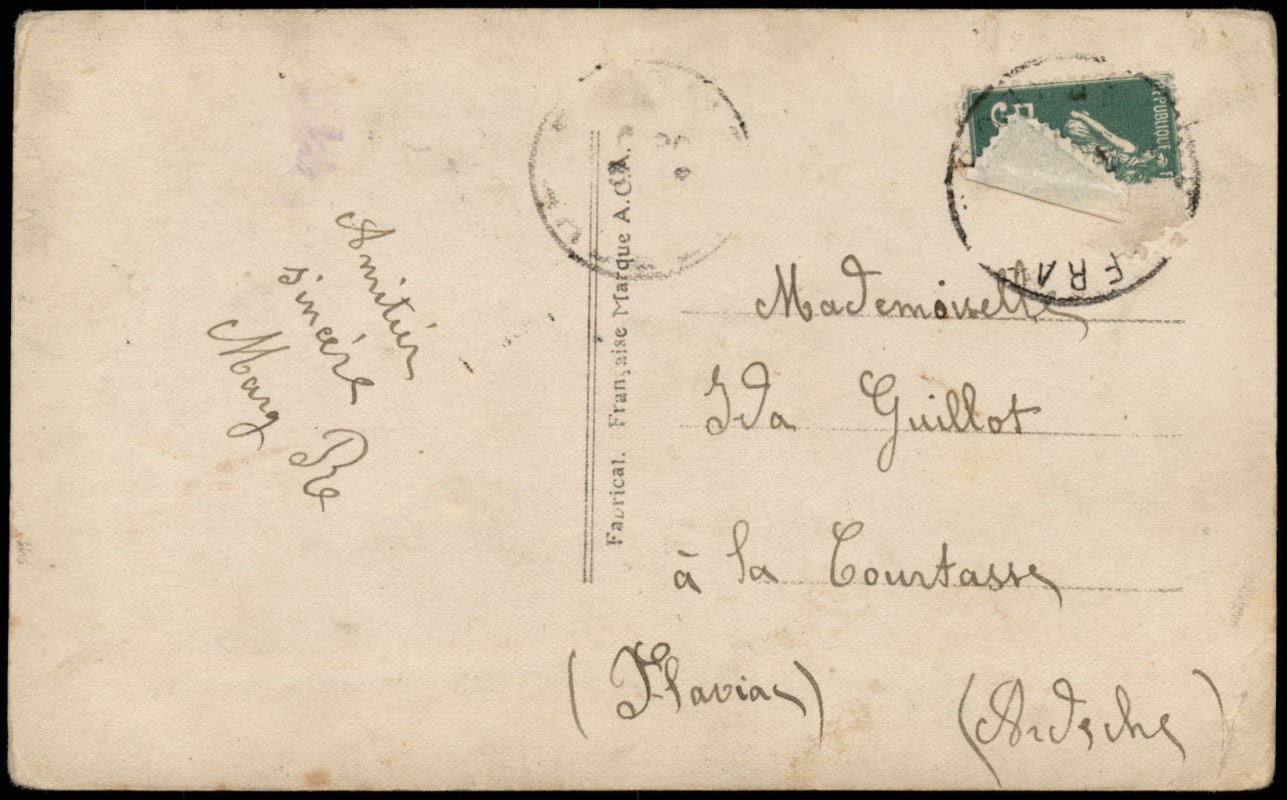 Amitiés
sincère
Marg
R
Fabricat. Française Marque A.C.A.
5
REPUBLIQUE
FRA
Mademoiselle
Ida Guillot
à la Courtasse
(Flaviac)
(Ardèche)